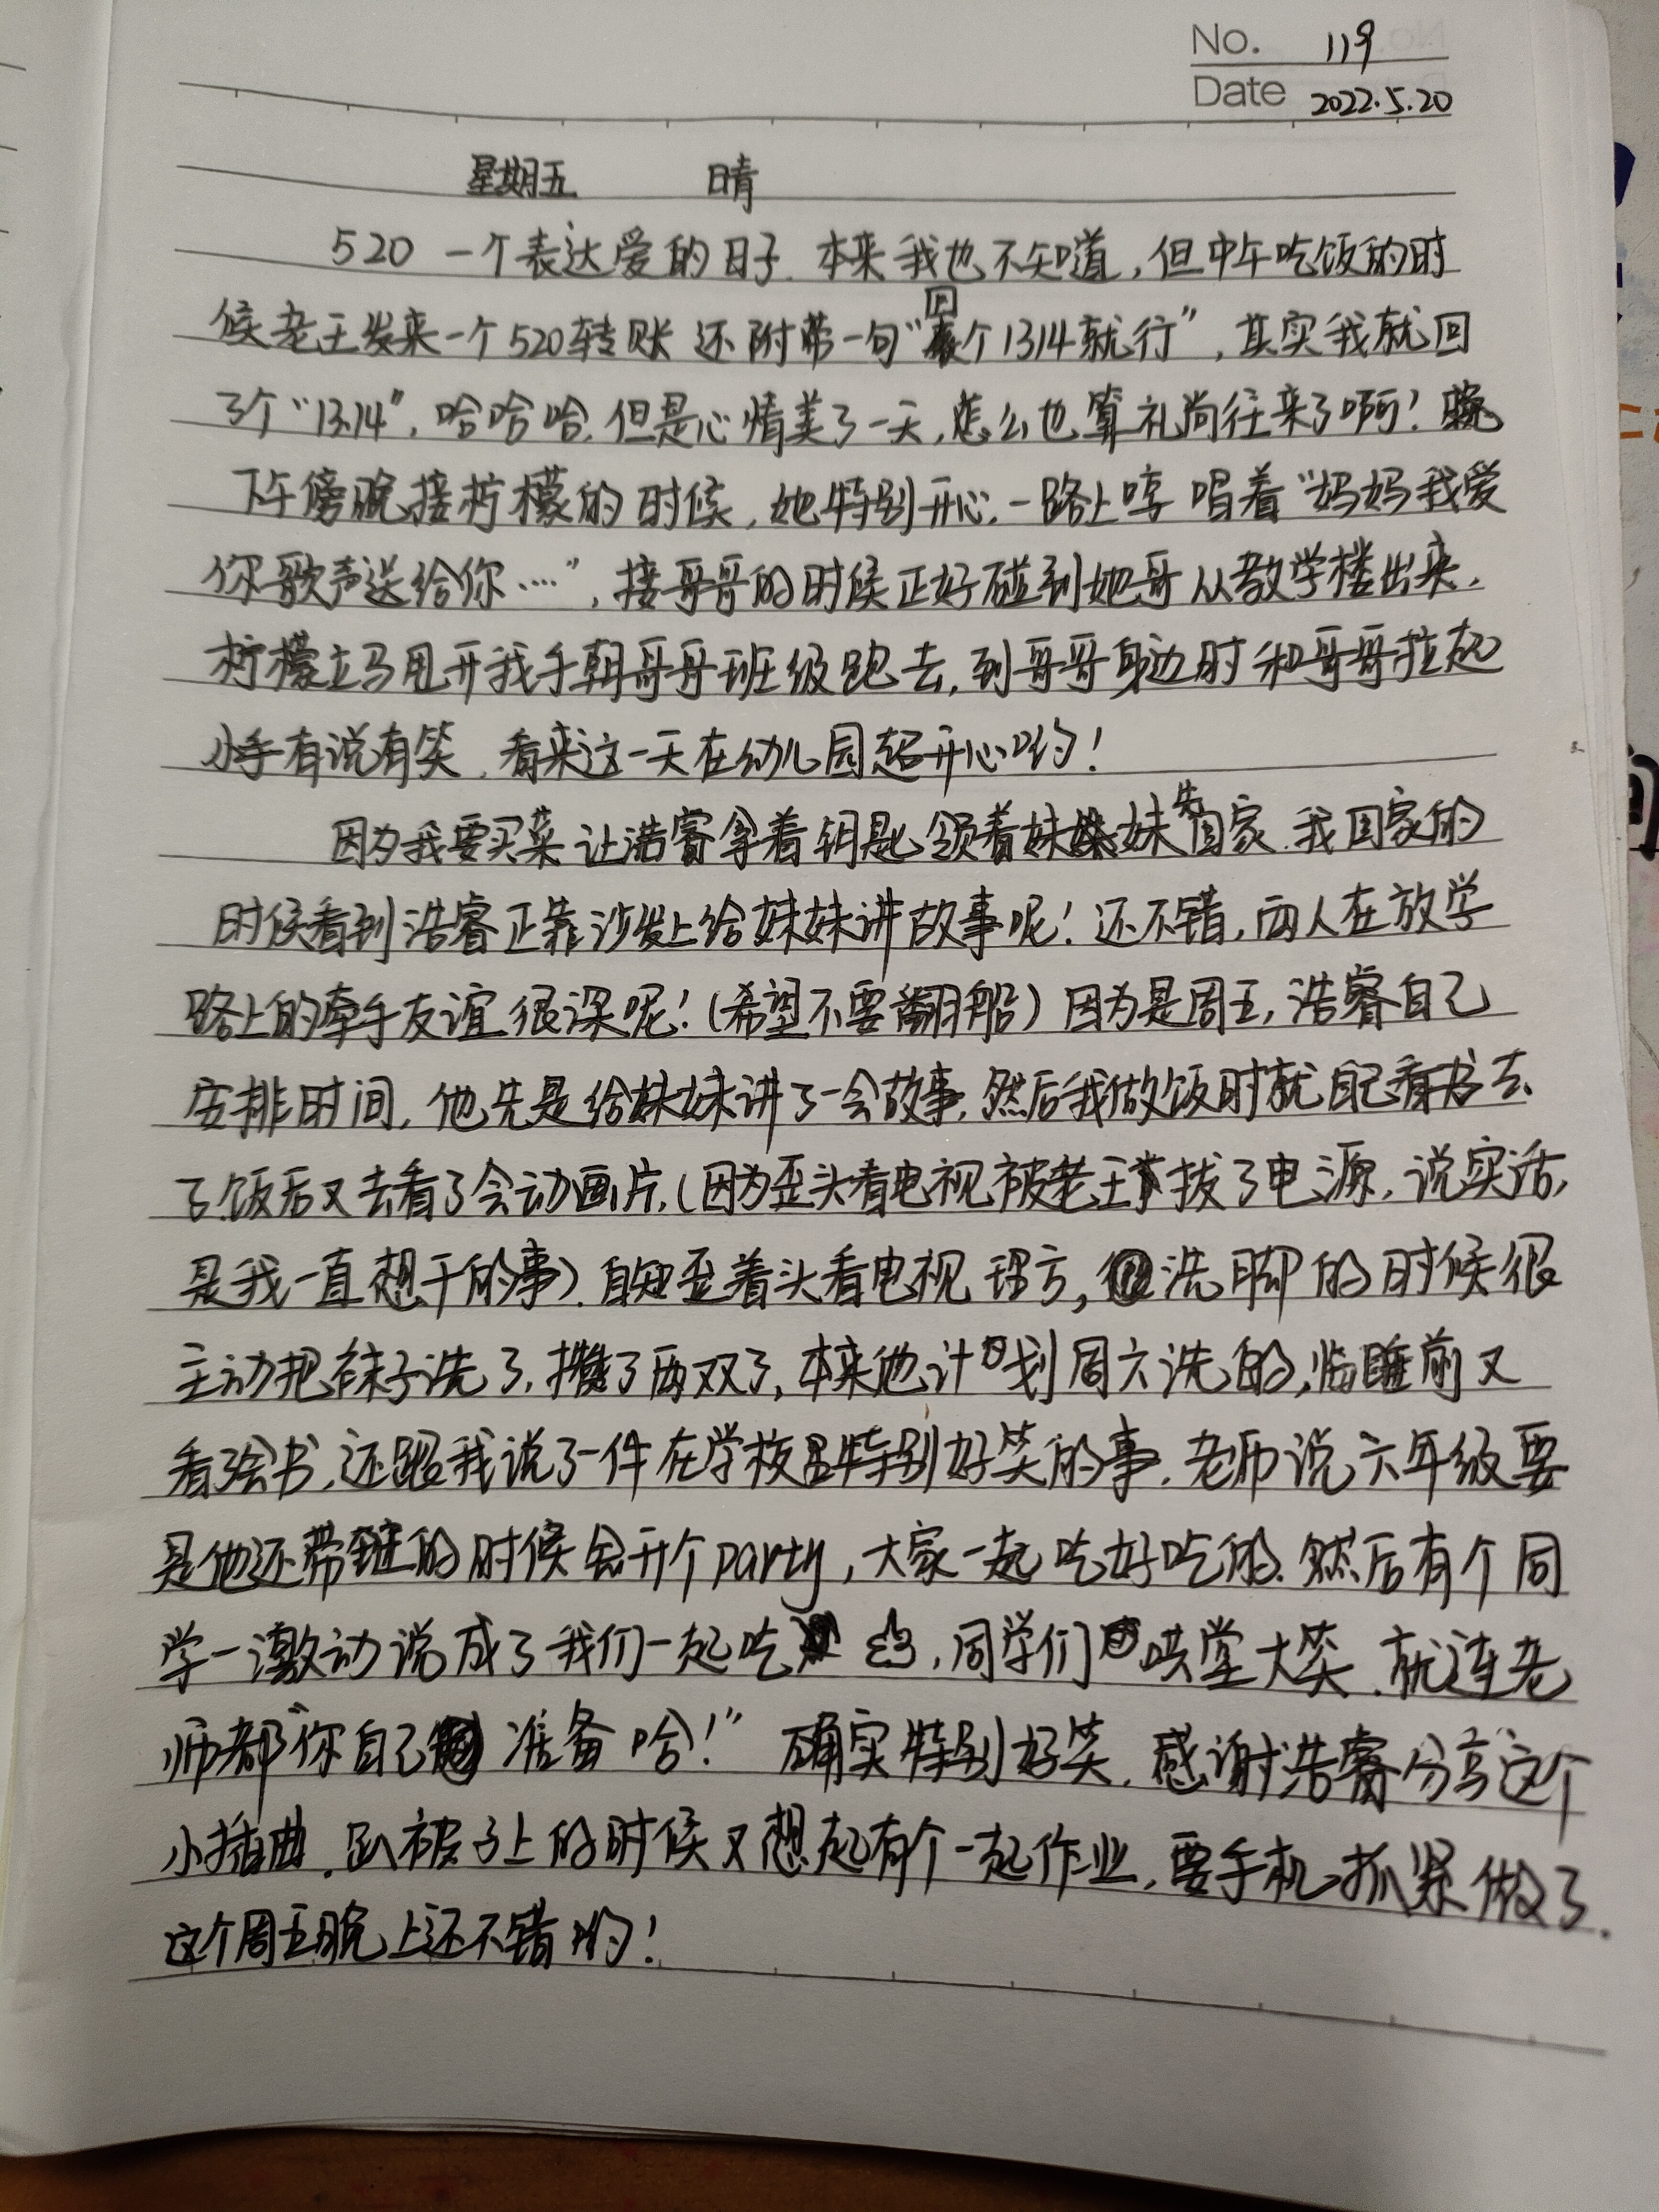 No. 119
Date 2022.5.20
星期五 晴
520 一个表达爱的日子.本来我也不知道,但中午吃饭的时
候老王发来一个520转账 还附带一句“回个1314就行”,其实我就回
了个“13.14”,哈哈哈.但是心情美了一天,怎么也算礼尚往来了啊!
下午傍晚接柠檬的时候,她特别开心.一路上哼唱着“妈妈我爱
你歌声送给你····”,接哥哥的时候正好碰到她哥从教学楼出来.
柠檬立马甩开我手朝哥哥班级跑去,到哥哥身边时和哥哥拉起
小手有说有笑.看来这一天在幼儿园超开心哟!
因为我要买菜让浩睿拿着钥匙领着妹妹先回家.我回家的
时候看到浩睿正靠沙发上给妹妹讲故事呢!还不错,两人在放学
路上的牵手友谊很深呢!(希望不要翻船)因为是周五,浩睿自己
安排时间,他先是给妹妹讲了一会故事.然后我做饭时就自己看书去
了.饭后又去看了会动画片.(因为歪头看电视被老王拔了电源,说实话,
是我一直想干的事).自知歪着头看电视理亏,洗脚的时候很
主动把袜子洗了,攒了两双了,本来他计划周六洗的,临睡前又
看绘书,还跟我说了一件在学校特别好笑的事.老师说六年级要
是他还带班的时候会开个party,大家一起吃好吃的.然后有个同
学一激动说成了我们一起吃,同学们哄堂大笑.就连老
师都“你自己准备哈!”确实特别好笑.感谢浩睿分享这个
小插曲.趴被子上的时候又想起有个一起作业,要手机,抓紧做了.
这个周五晚上还不错哟!